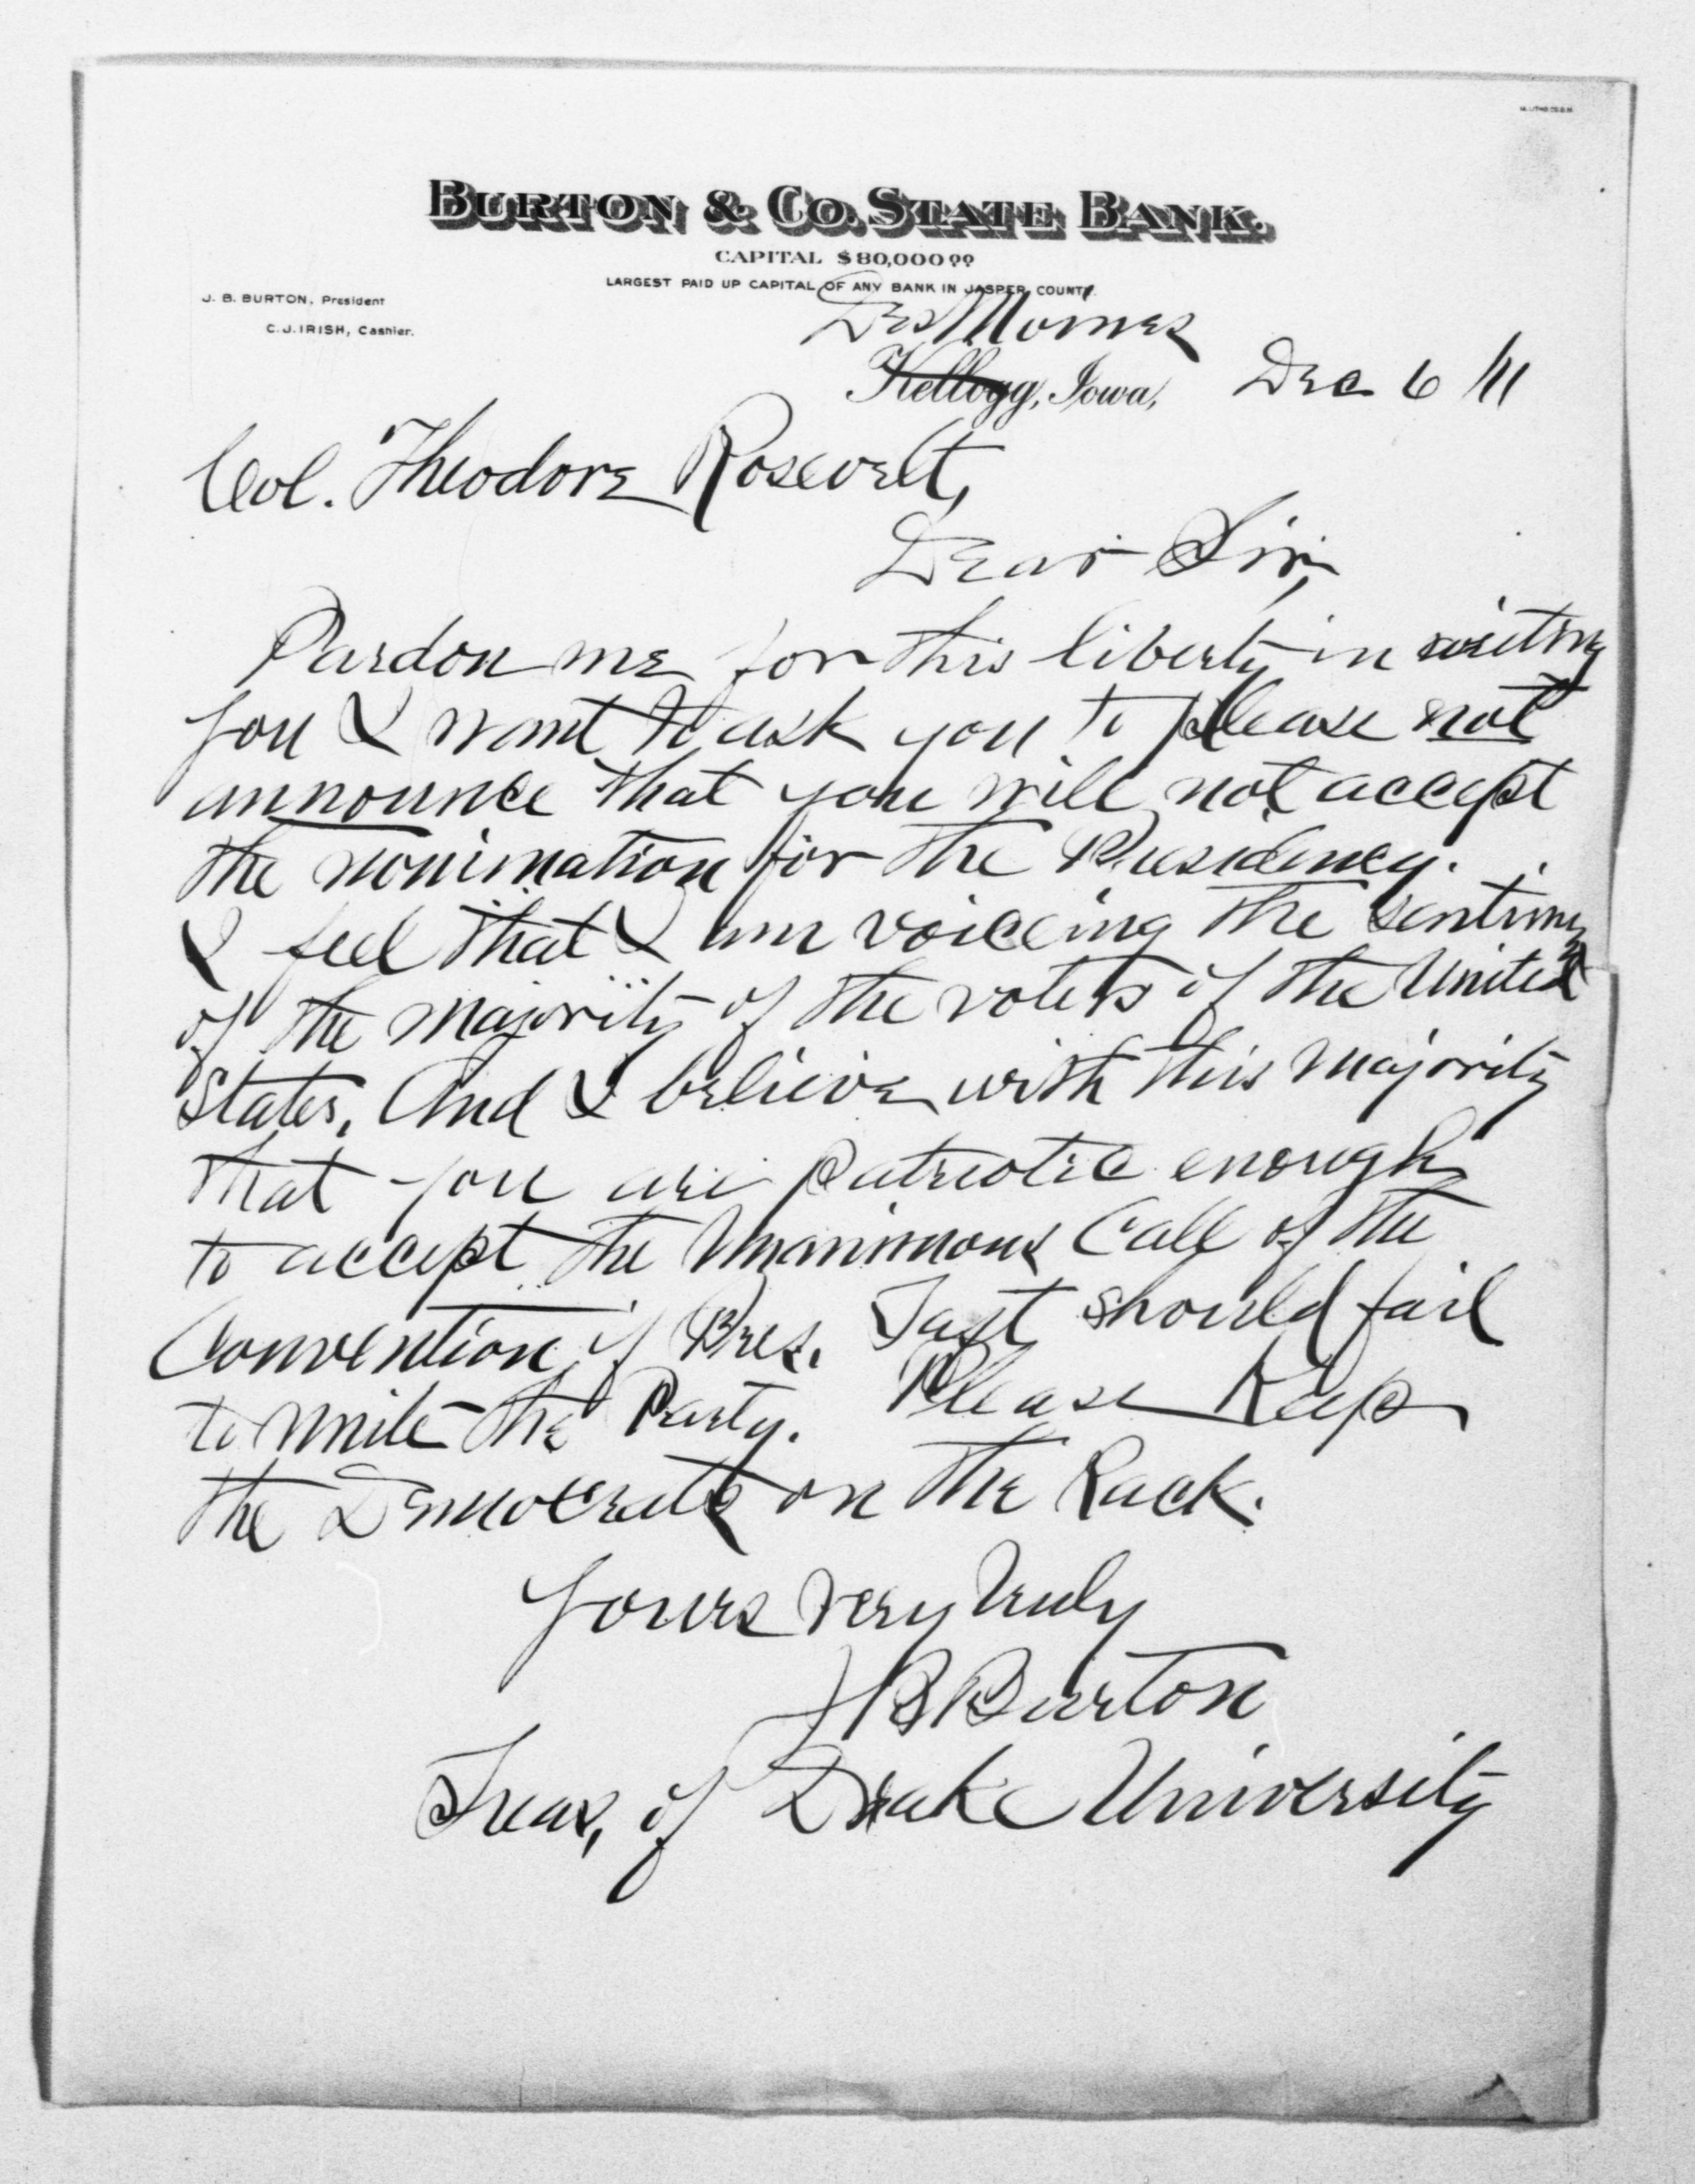 BURTON & CO. STATE BANK.
CAPITAL $80,000.00
LARGEST PAID UP CAPITAL OF ANY BANK IN JASPER COUNTY.
J. B. BURTON, President
C. J. IRISH, Cashier.
Des Moines
Kellogg, Iowa, Dec 6 /11
Col. Theodore Rosevelt,
Dear Sir,
Pardon me for this liberty in writing
you I want to ask you to please not
announce that you will not accept
the nonimation for the Presidency.
I feel that I am voiceing the sentiment
of the majority of the voters of the United
States, And I believe with this majority
that you are patriotic enough
to accept the Unanimous Call of the
Convention if Pres. Taft should fail
to Unite the Party. Please Keep
the Democrats on the Rack.
Yours Very Truly
J B Burton
Treas, of Drake University